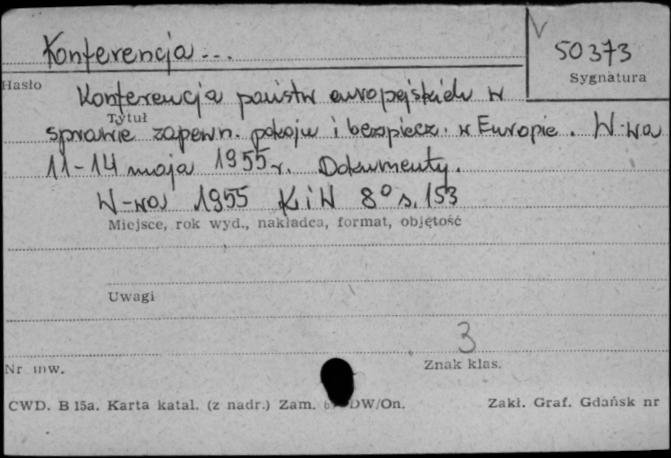 V
Konferencja...
50373
Hasło
Sygnatura
Konferencja państw europejskich w
Tytuł
sprawie zapewn. pokoju i bezpiecz. w Europie. W-wa
11-14 maja 1955 r. Dokumenty.
W-wa 1955 KiW 8° s. 153
Miejsce, rok wyd., nakładca, format, objętość
Uwagi
3
Nr inw.
Znak klas.
CWD. B 15a. Karta katal. (z nadr.) Zam. DW/On.
Zakł. Graf. Gdańsk nr